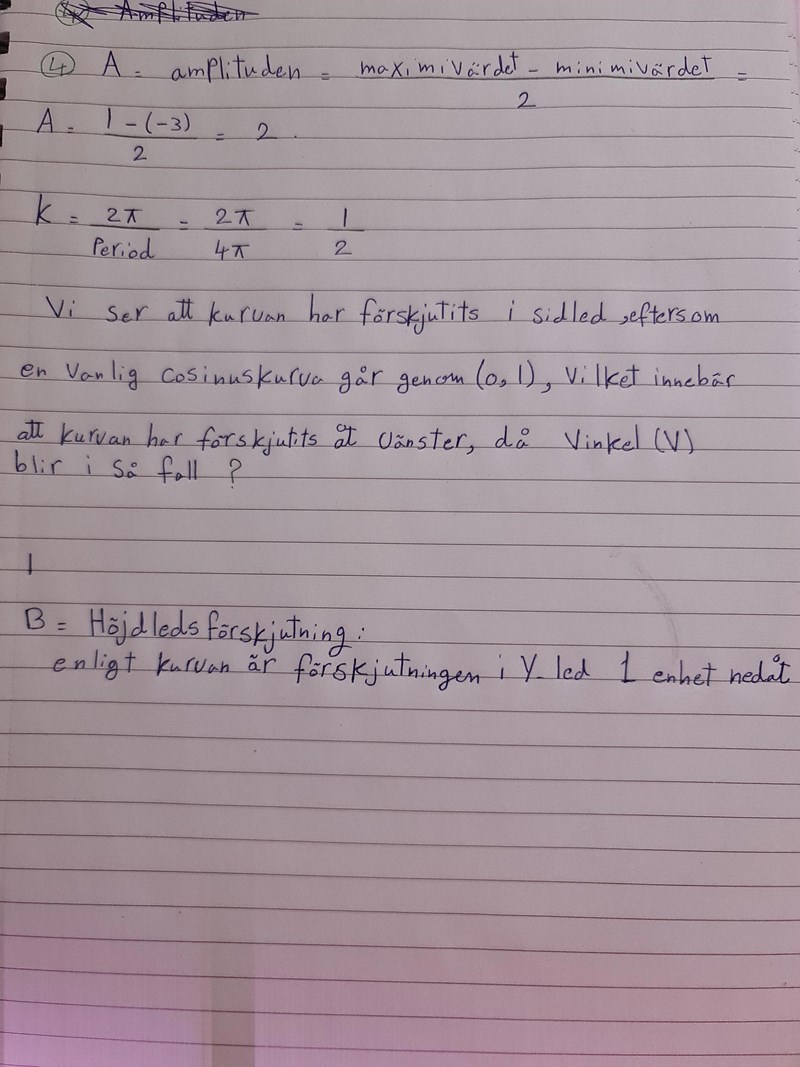 ④ Amplituden
④ A = amplituden = maximivärdet - minimivärdet / 2 =
A = 1-(-3) / 2 = 2.
K = 2π / Period = 2π / 4π = 1 / 2
Vi ser att kurvan har förskjutits i sidled, eftersom
en vanlig cosinuskurva går genom (0,1), vilket innebär
att kurvan har förskjutits åt vänster, då vinkel (v)
blir i så fall ?
B = Höjdledsförskjutning:
enligt kurvan är förskjutningen i Y-led 1 enhet nedåt